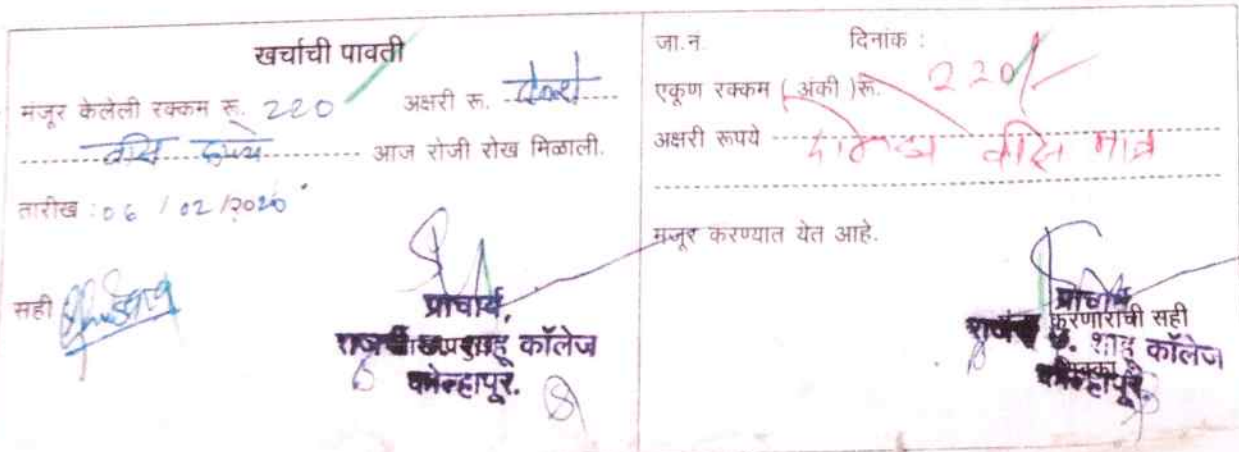 खर्चाची पावती
मंजूर केलेली रक्कम रू. 220 अक्षरी रू. दोनशे
वीस रूपये आज रोजी रोख मिळाली.
तारीख : 06 / 02 /2020
सही
प्राचार्य,
राजर्षी शाहू कॉलेज
कोल्हापूर.
जा.नं. दिनांक :
एकूण रक्कम ( अंकी )रू. 220/-
अक्षरी रूपये दोनशे वीस मात्र
मंजूर करण्यात येत आहे.
प्राचार्य
करणाराची सही
शाहू कॉलेज
शिक्का
कोल्हापूर